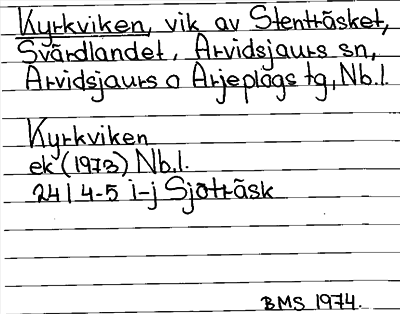 Kyrkviken, vik av Stenträsket,
Svärdlandet, Arvidsjaurs sn,
Arvidsjaurs o Arjeplogs tg, Nb.l.
Kyrkviken
ek (1973) Nb.l.
24 I 4-5 i-j Sjöträsk
BMS 1974.